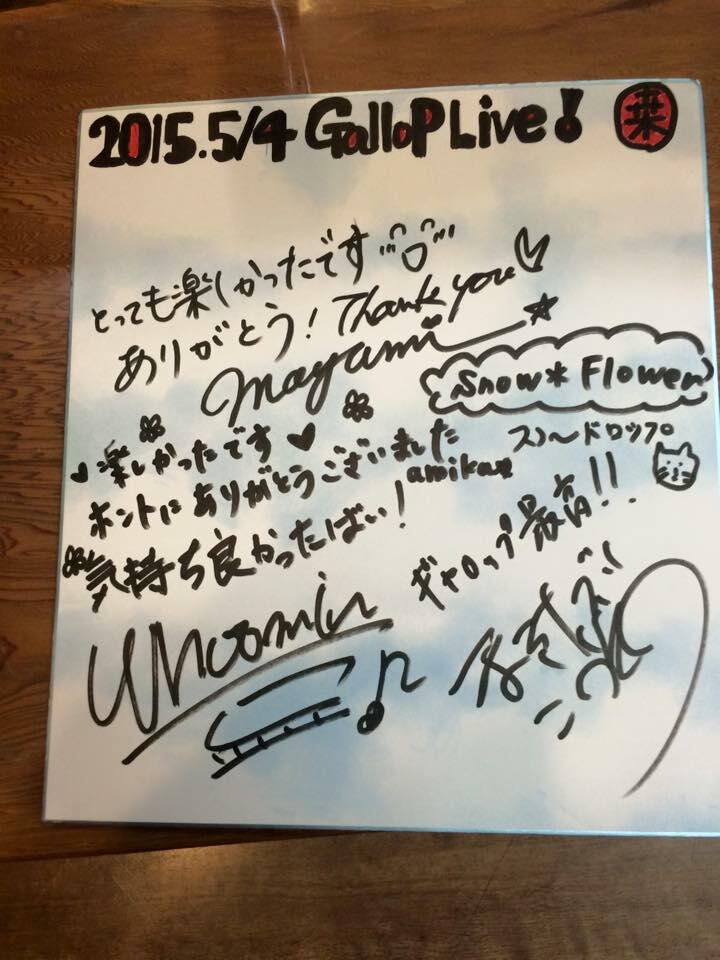 2015.5/4 GalloP Live!
とっても楽しかったです
ありがとう! Thank you
mayami
Snow* Flower
スノ〜ドロップ
楽しかったです
ホントにありがとうございました
amikan
気持ち良かったばい!
ギャロップ最高!!